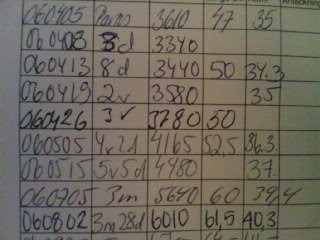 060405 3610 47 35
060408 3d 3340
060413 8d 3440 50 34.3
060419 2v 3580 35
060426 3v 3780 50
060505 4v2d 4165 52.5 36.3
060515 5v5d 4480 37.
060705 3m 5640 60 39,4
060802 3m28d 6010 61,5 40,3